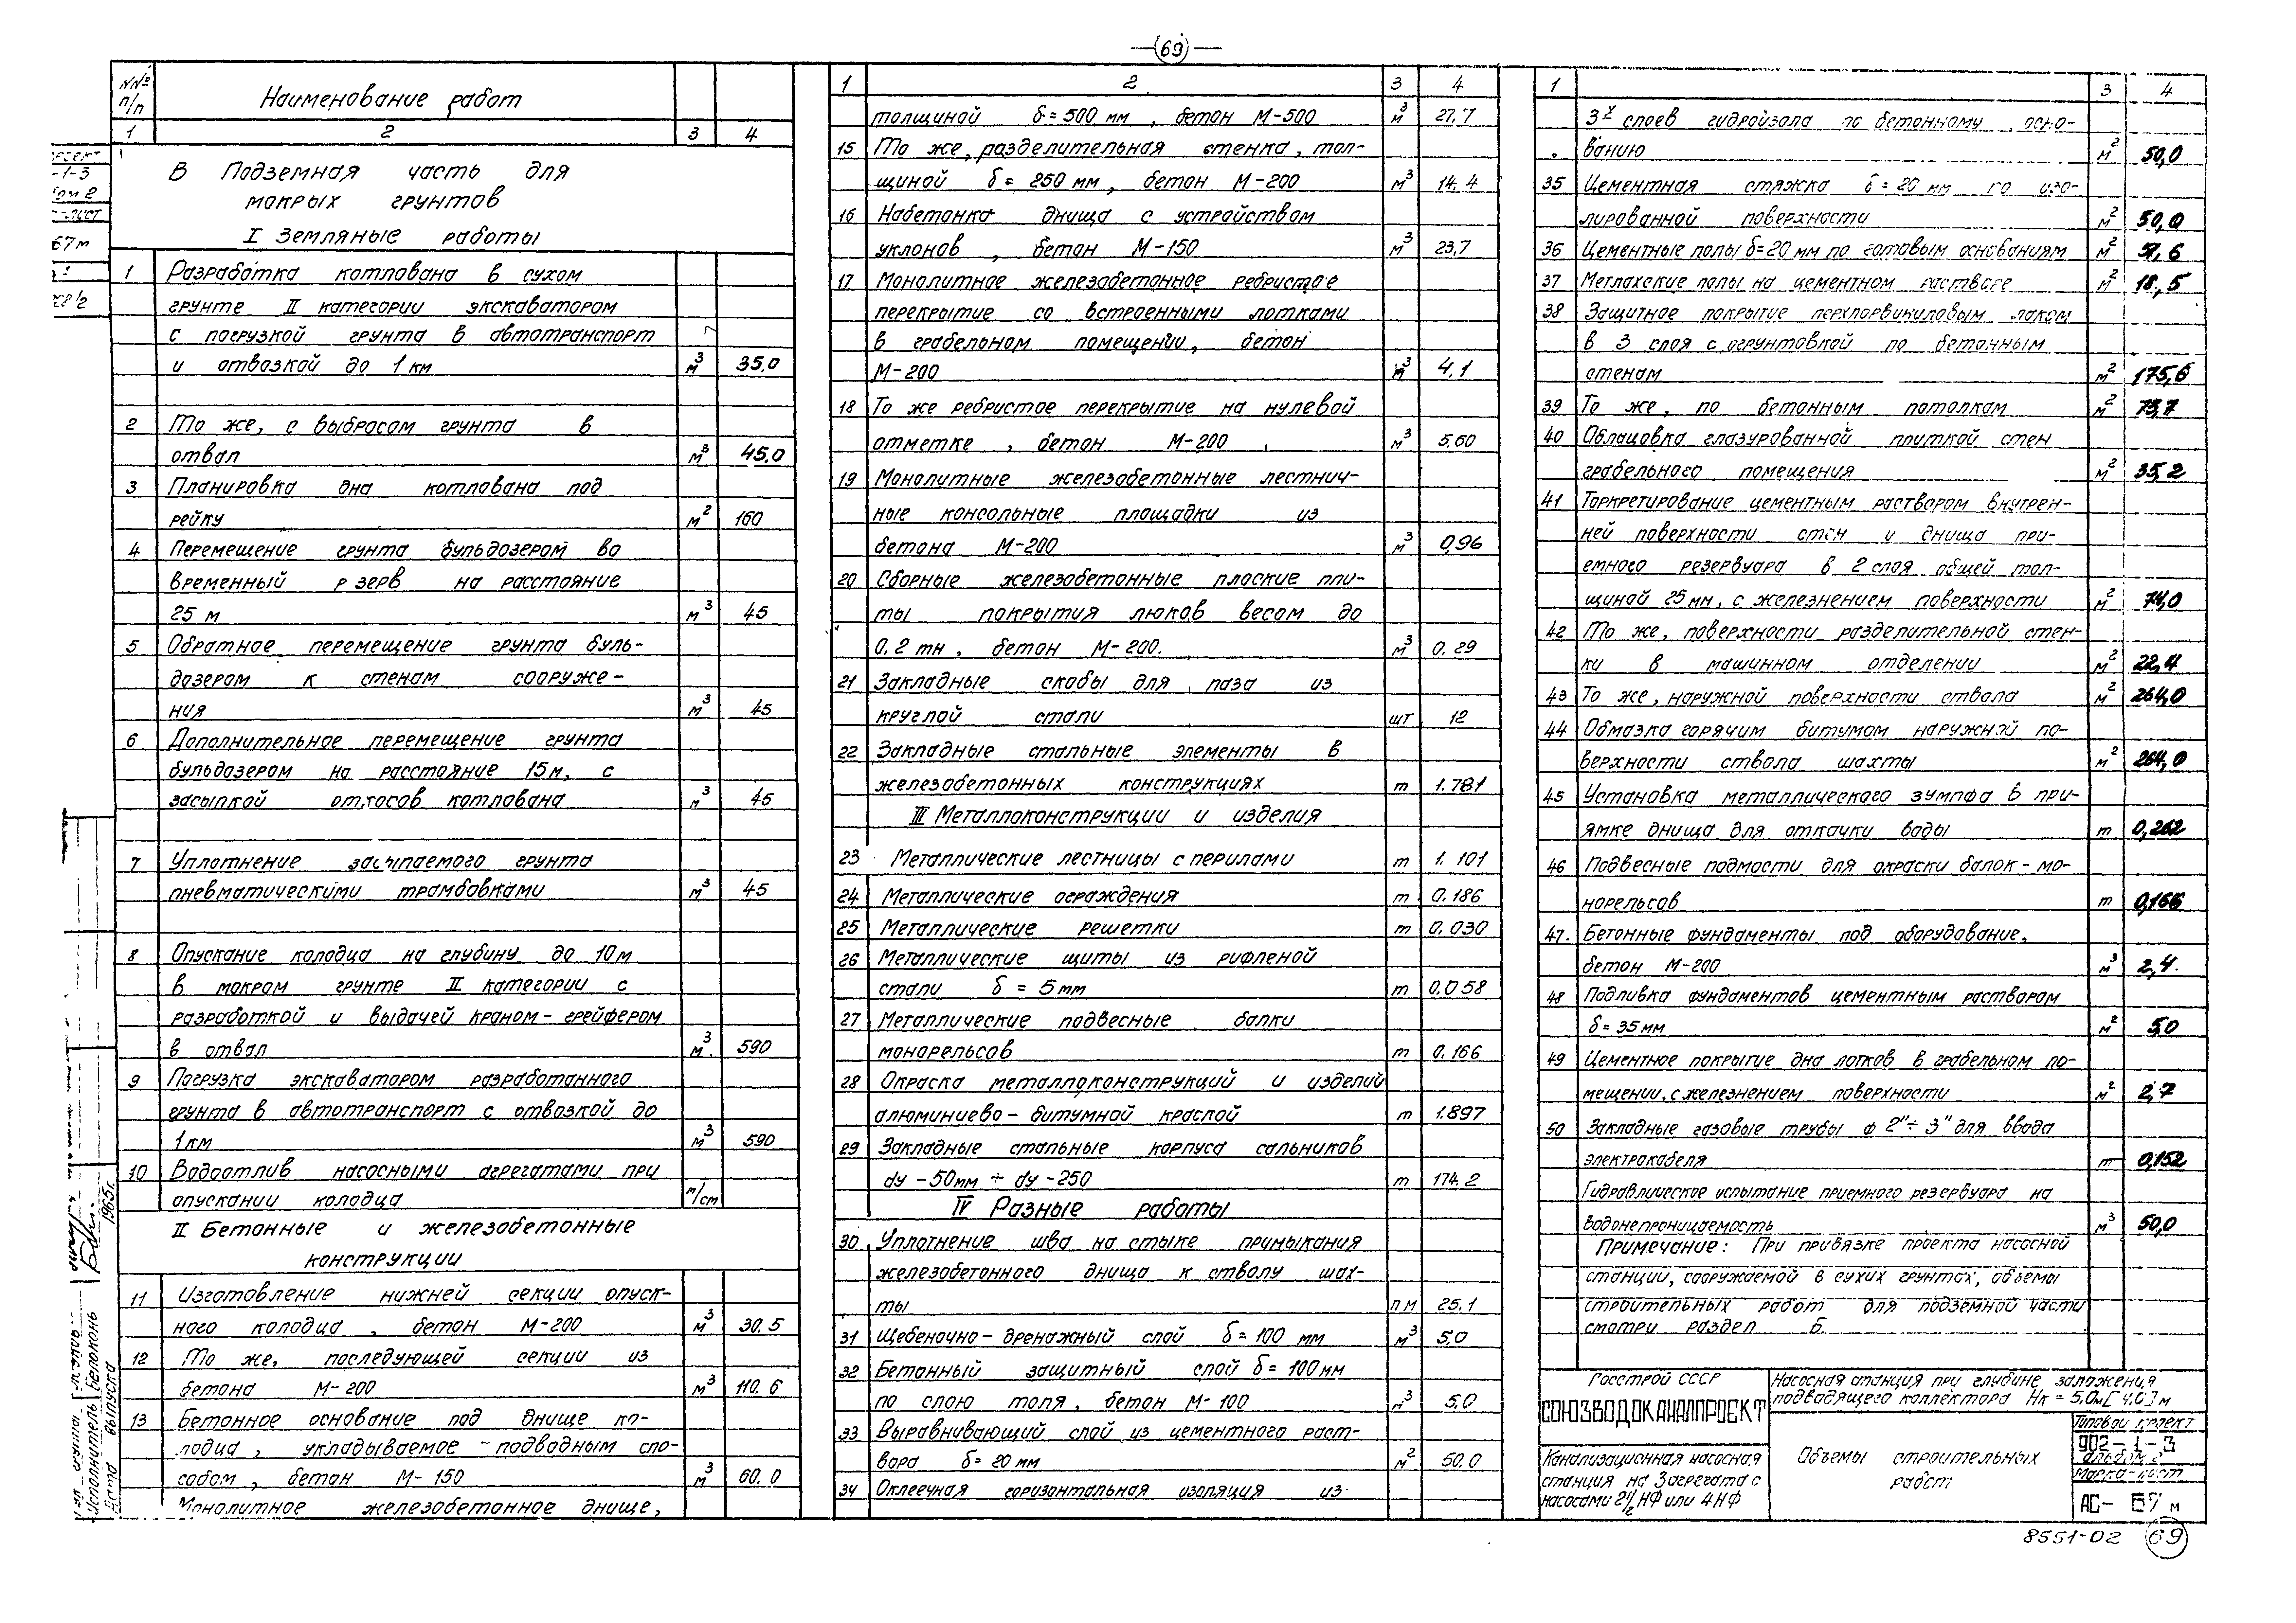 69
№№ п/п Наименование работ
1 2 3 4
В Подземная часть для
мокрых грунтов
I Земляные работы
1 Разработка котлована в сухом
грунте II категории экскаватором
с погрузкой грунта в автотранспорт
и отвозкой до 1 км м3 35.0
2 То же, с выбросом грунта в
отвал м3 45.0
3 Планировка дна котлована под
рейку м2 160
4 Перемещение грунта бульдозером во
временный р зерв на расстояние
25 м м3 45
5 Обратное перемещение грунта буль-
дозером к стенам сооруже-
ния м3 45
6 Дополнительное перемещение грунта
бульдозером на расстояние 15 м, с
засыпкой откосов котлована м3 45
7 Уплотнение засыпаемого грунта
пневматическими трамбовками м3 45
8 Опускание колодца на глубину до 10 м
в мокром грунте II категории с
разработкой и выдачей краном-грейфером
в отвал м3 590
9 Погрузка экскаватором разработанного
грунта в автотранспорт с отвозкой до
1 км м3 590
10 Водоотлив насосными агрегатами при
опускании колодца м/см
II Бетонные и железобетонные
конструкции
11 Изготовление нижней секции опуск-
ного колодца, бетон М-200 м3 30.5
12 То же, последующей секции из
бетона М-200 м3 110.6
13 Бетонное основание под днище ко-
лодца, укладываемое подводным спо-
собом, бетон М-150 м3 60.0
Монолитное железобетонное днище,
1 2 3 4
толщиной δ = 500 мм, бетон М-500 м3 27.7
15 То же, разделительная стенка, тол-
щиной δ = 250 мм, бетон М-200 м3 14.4
16 Набетонка днища с устройством
уклонов, бетон М-150 м3 23,7
17 Монолитное железобетонное ребристое
перекрытие со встроенными лотками
в грабельном помещении, бетон
М-200 м3 4.1
18 То же ребристое перекрытие на нулевой
отметке, бетон М-200 м3 5.60
19 Монолитные железобетонные лестнич-
ные консольные площадки из
бетона М-200 м3 0,96
20 Сборные железобетонные плоские пли-
ты покрытия люков весом до
0.2 тн, бетон М-200. м3 0.29
21 Закладные скобы для паза из
круглой стали шт 12
22 Закладные стальные элементы в
железобетонных конструкциях т 1.781
III Металлоконструкции и изделия
23 Металлические лестницы с перилами т 1.101
24 Металлические ограждения т 0.186
25 Металлические решетки т 0.030
26 Металлические щиты из рифленой
стали δ = 5 мм т 0.058
27 Металлические подвесные балки
монорельсов т 0.166
28 Окраска металлоконструкций и изделий
алюминиево-битумной краской т 1.897
29 Закладные стальные корпуса сальников
dy-50мм ÷ dy-250 т 174.2
IV Разные работы
30 Уплотнение шва на стыке примыкания
железобетонного днища к стволу шах-
ты п м 25.1
31 Щебеночно-дренажный слой δ = 100 мм м3 5.0
32 Бетонный защитный слой δ = 100 мм
по слою толя, бетон М-100 м3 5.0
33 Выравнивающий слой из цементного раст-
вора δ = 20 мм м2 50.0
34 Оклеечная горизонтальная изоляция из
1 3 4
3х слоев гидроизола по бетонному осно-
ванию м2 50,0
35 Цементная стяжка δ = 20 мм по изо-
лированной поверхности м2 50,0
36 Цементные полы δ=20 мм по готовым основаниям м2
37 Метлахские полы на цементном растворе м2 18,5
38 Защитное покрытие перхлорвиниловым лаком
в 3 слоя с огрунтовкой по бетонным
стенам м2 175,6
39 То же, по бетонным потолкам м2
40 Облицовка глазурованной плиткой стен
грабельного помещения м2 35,2
41 Торкретирование цементным раствором внутрен-
ней поверхности стен и днища при-
емного резервуара в 2 слоя общей тол-
щиной 25 мм, с железнением поверхности м2 74,0
42 То же, поверхности разделительной стен-
ки в машинном отделении м2 22,4
43 То же, наружной поверхности ствола м2 264,0
44 Обмазка горячим битумом наружной по-
верхности ствола шахты м2 264,0
45 Установка металлического зумпфа в при-
ямке днища для откачки воды т 0,262
46 Подвесные подмости для окраски балок-мо-
норельсов т 0,166
47. Бетонные фундаменты под оборудование,
бетон М-200 м3 2,4.
48 Подливка фундаментов цементным раствором
δ = 35 мм м2 5,0
49 Цементное покрытие дна лотков в грабельном по-
мещении, с железнением поверхности м2 2,7
50 Закладные газовые трубы ф 2"÷ 3" для ввода
электрокабеля т 0,152
Гидравлическое испытание приемного резервуара на
водонепроницаемость м3 50,0
Примечание: При привязке проекта насосной
станции, сооружаемой в сухих грунтах, объемы
строительных работ для подземной части
смотри раздел Б.
Госстрой СССР
СОЮЗВОДОКАНАЛПРОЕКТ
Канализационная насосная
станция на 3 агрегата с
насосами 2½ НФ или 4НФ
Насосная станция при глубине заложения
подводящего коллектора Нк = 5,0м [4,0] м
Объемы строительных
работ
Типовой проект
902-1-3
Альбом 2
Марка-лист
АС-67 м
8551-02 69
67м
Исполнитель Белоконь
Дата выпуска 1965г.